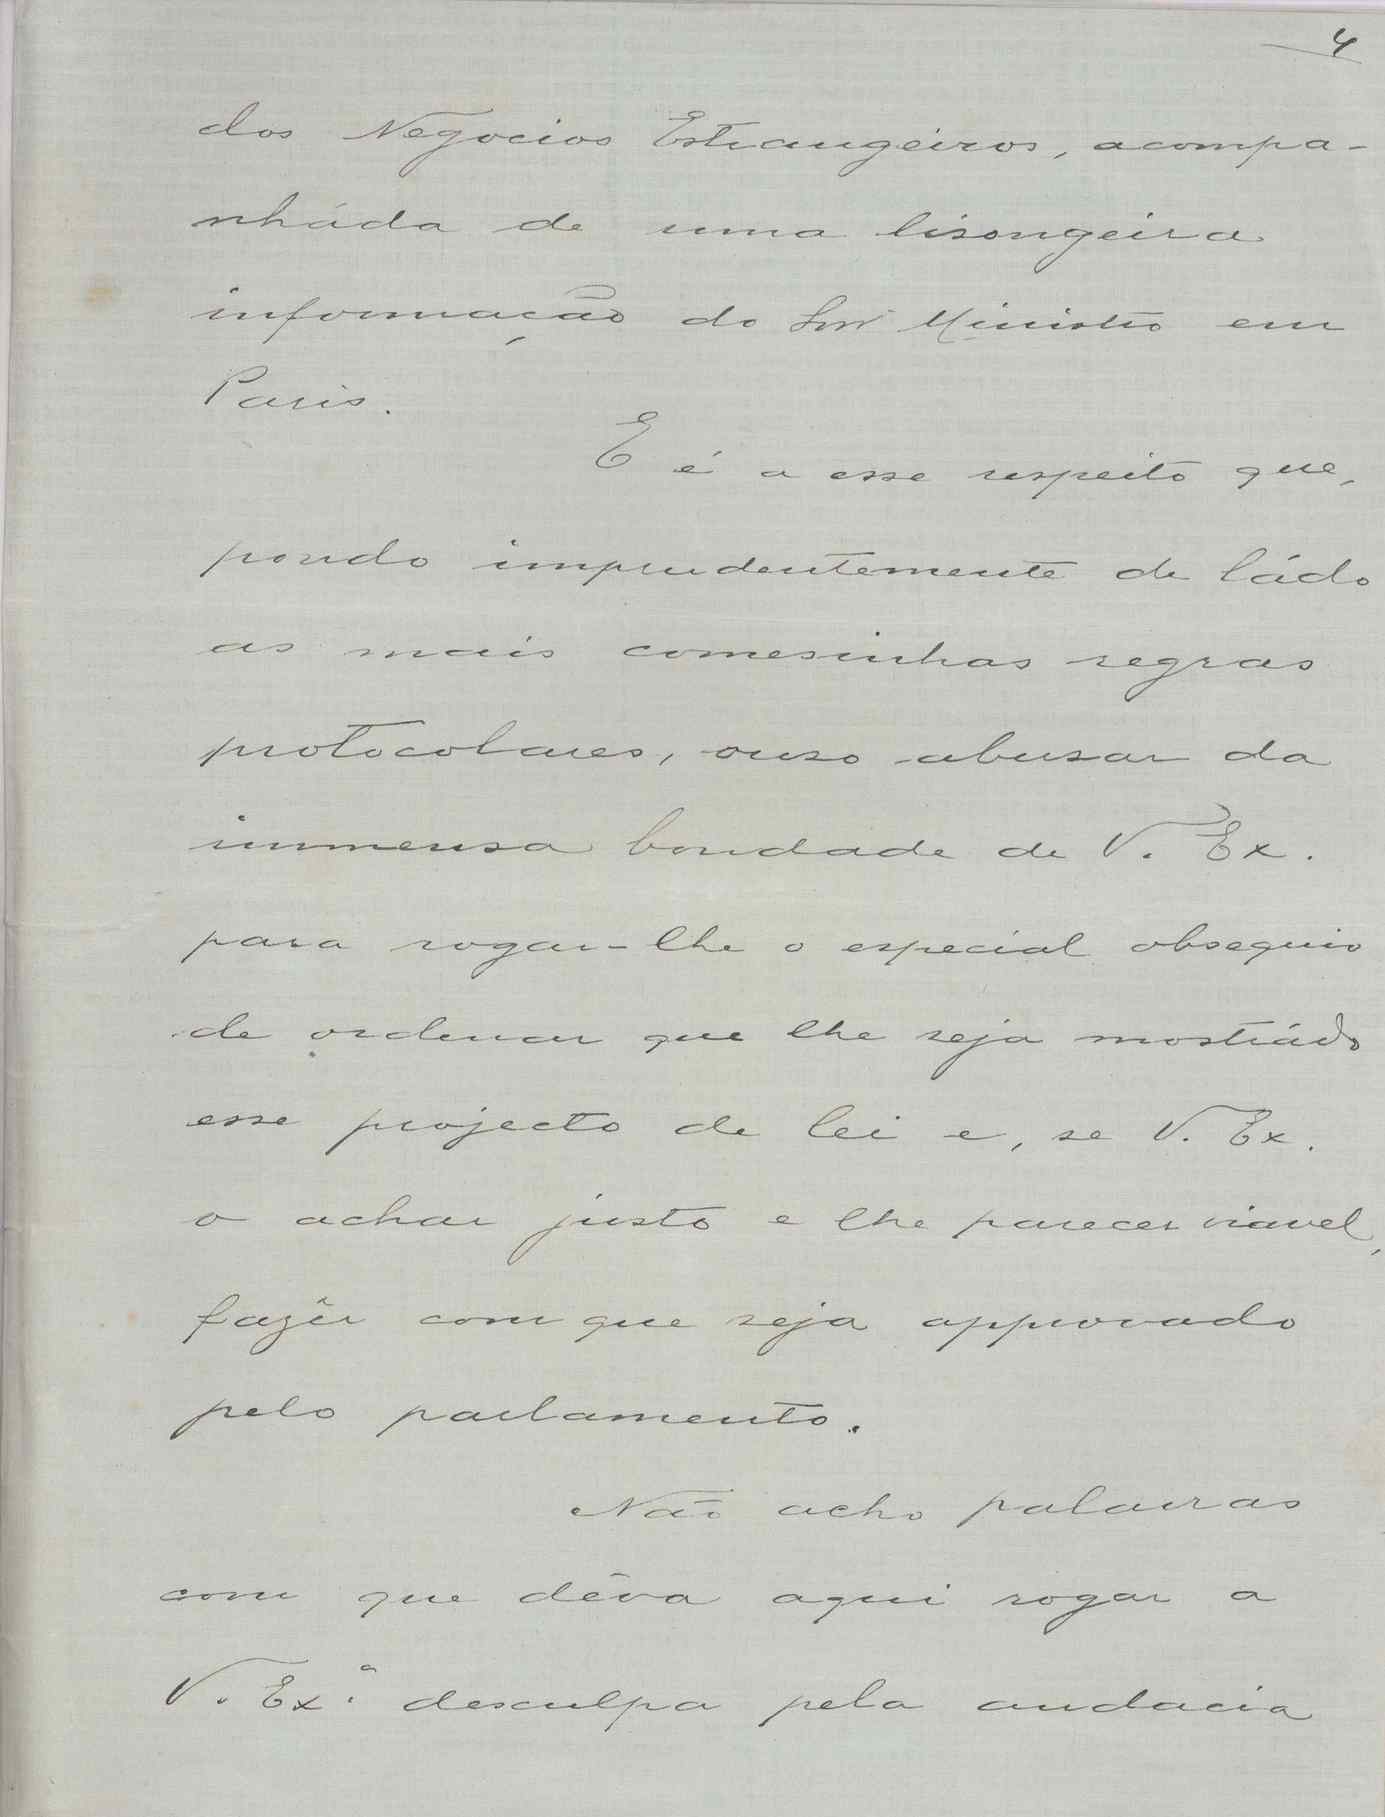 4
dos Negocios Estrangeiros, acompa-
nháda de uma lisongeira
informação do Snr Ministro em
Paris.
E é a esse respeito que,
pondo imprudentemente de ládo
as mais comesinhas regras
protocolares, ouso abusar da
immensa bondade de V. Ex.
para rogar-lhe o especial obsequio
de ordenar que lhe seja mostrádo
esse projecto de lei e, se V. Ex.
o achar justo e lhe parecer viavel,
fazêr com que seja approvado
pelo parlamento.
Não acho palavras
com que déva aqui rogar a
V. Ex.ª desculpa pela audacia